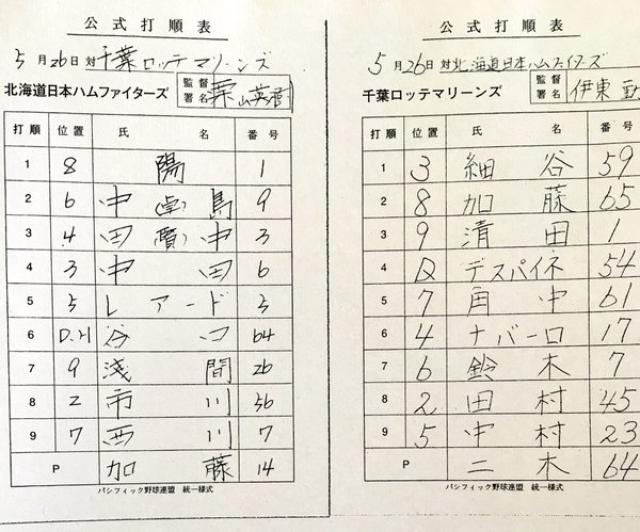 公式打順表
5月26日対千葉ロッテマリーンズ
北海道日本ハムファイターズ 監督署名 栗山英樹
打順 位置 氏名 番号
1 8 陽 1
2 6 中(卓)島 9
3 4 田(賢)中 3
4 3 中田 6
5 5 レアード 5
6 D.H 谷口 64
7 9 浅間 26
8 2 市川 56
9 7 西川 7
P 加藤 14
パシフィック野球連盟 統一様式
公式打順表
5月26日対北海道日本ハムファイターズ
千葉ロッテマリーンズ 監督署名 伊東勤
打順 位置 氏名 番号
1 3 細谷 59
2 8 加藤 65
3 9 清田 1
4 D デスパイネ 54
5 7 角中 61
6 4 ナバーロ 17
7 6 鈴木 7
8 2 田村 45
9 5 中村 23
P 二木 64
パシフィック野球連盟 統一様式